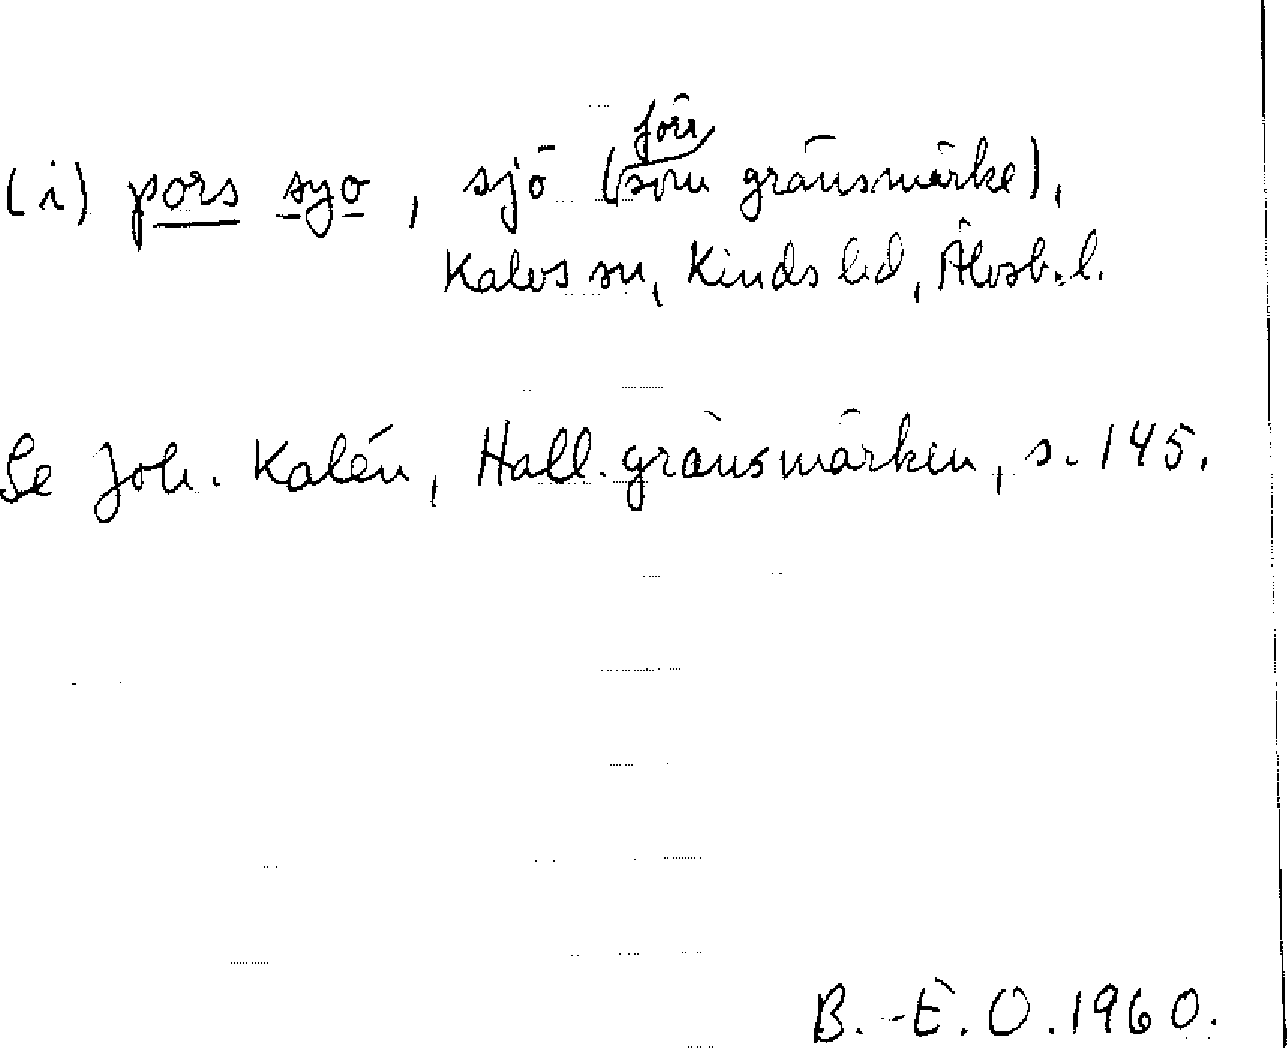 (i) pors syo, sjö (förr som gränsmärke),
Kalvs sn, Kinds hd, Älvsb. l.
Se Joh. Kalén, Hall. gränsmärken, s. 145.
B.-E. O. 1960.